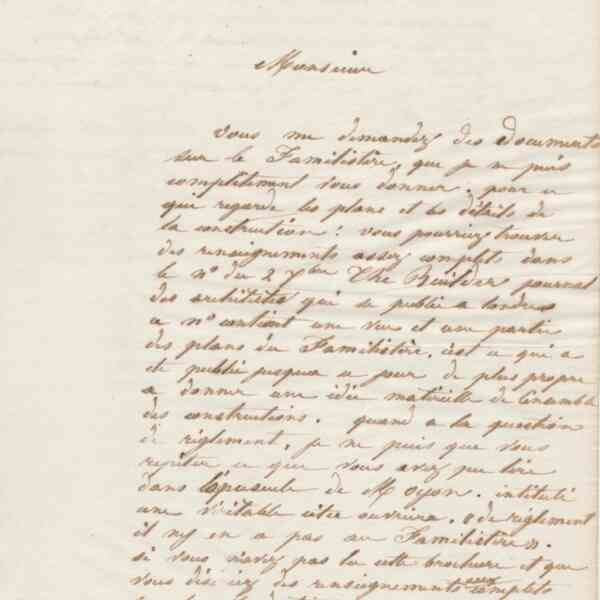 Monsieur
Vous me demandez des documents
sur le Familistère, que je ne puis
complètement vous donner. pour ce
qui regarde les plans et les détails de
la construction : vous pourriez trouver
des renseignements assez complets dans
le n° du 2 7bre The Builder journal
des architectes qui se publie a londres
ce n° contient une vue et une partie
des plans du Familistère. c'est ce qui a
été publié jusqua ce jour de plus propre
a donner une idée matérielle de l'ensemble
des constructions. quand a la question
de règlement, je ne puis que vous
répéter ce que vous avez pu lire
dans l'opuscule de M oyon. intitulé
une véritable citée ouvrière. « de règlement
il ny en a pas au Familistère ».
si vous n'avez pas lu cette brochure et que
vous désiriez des renseignements complets